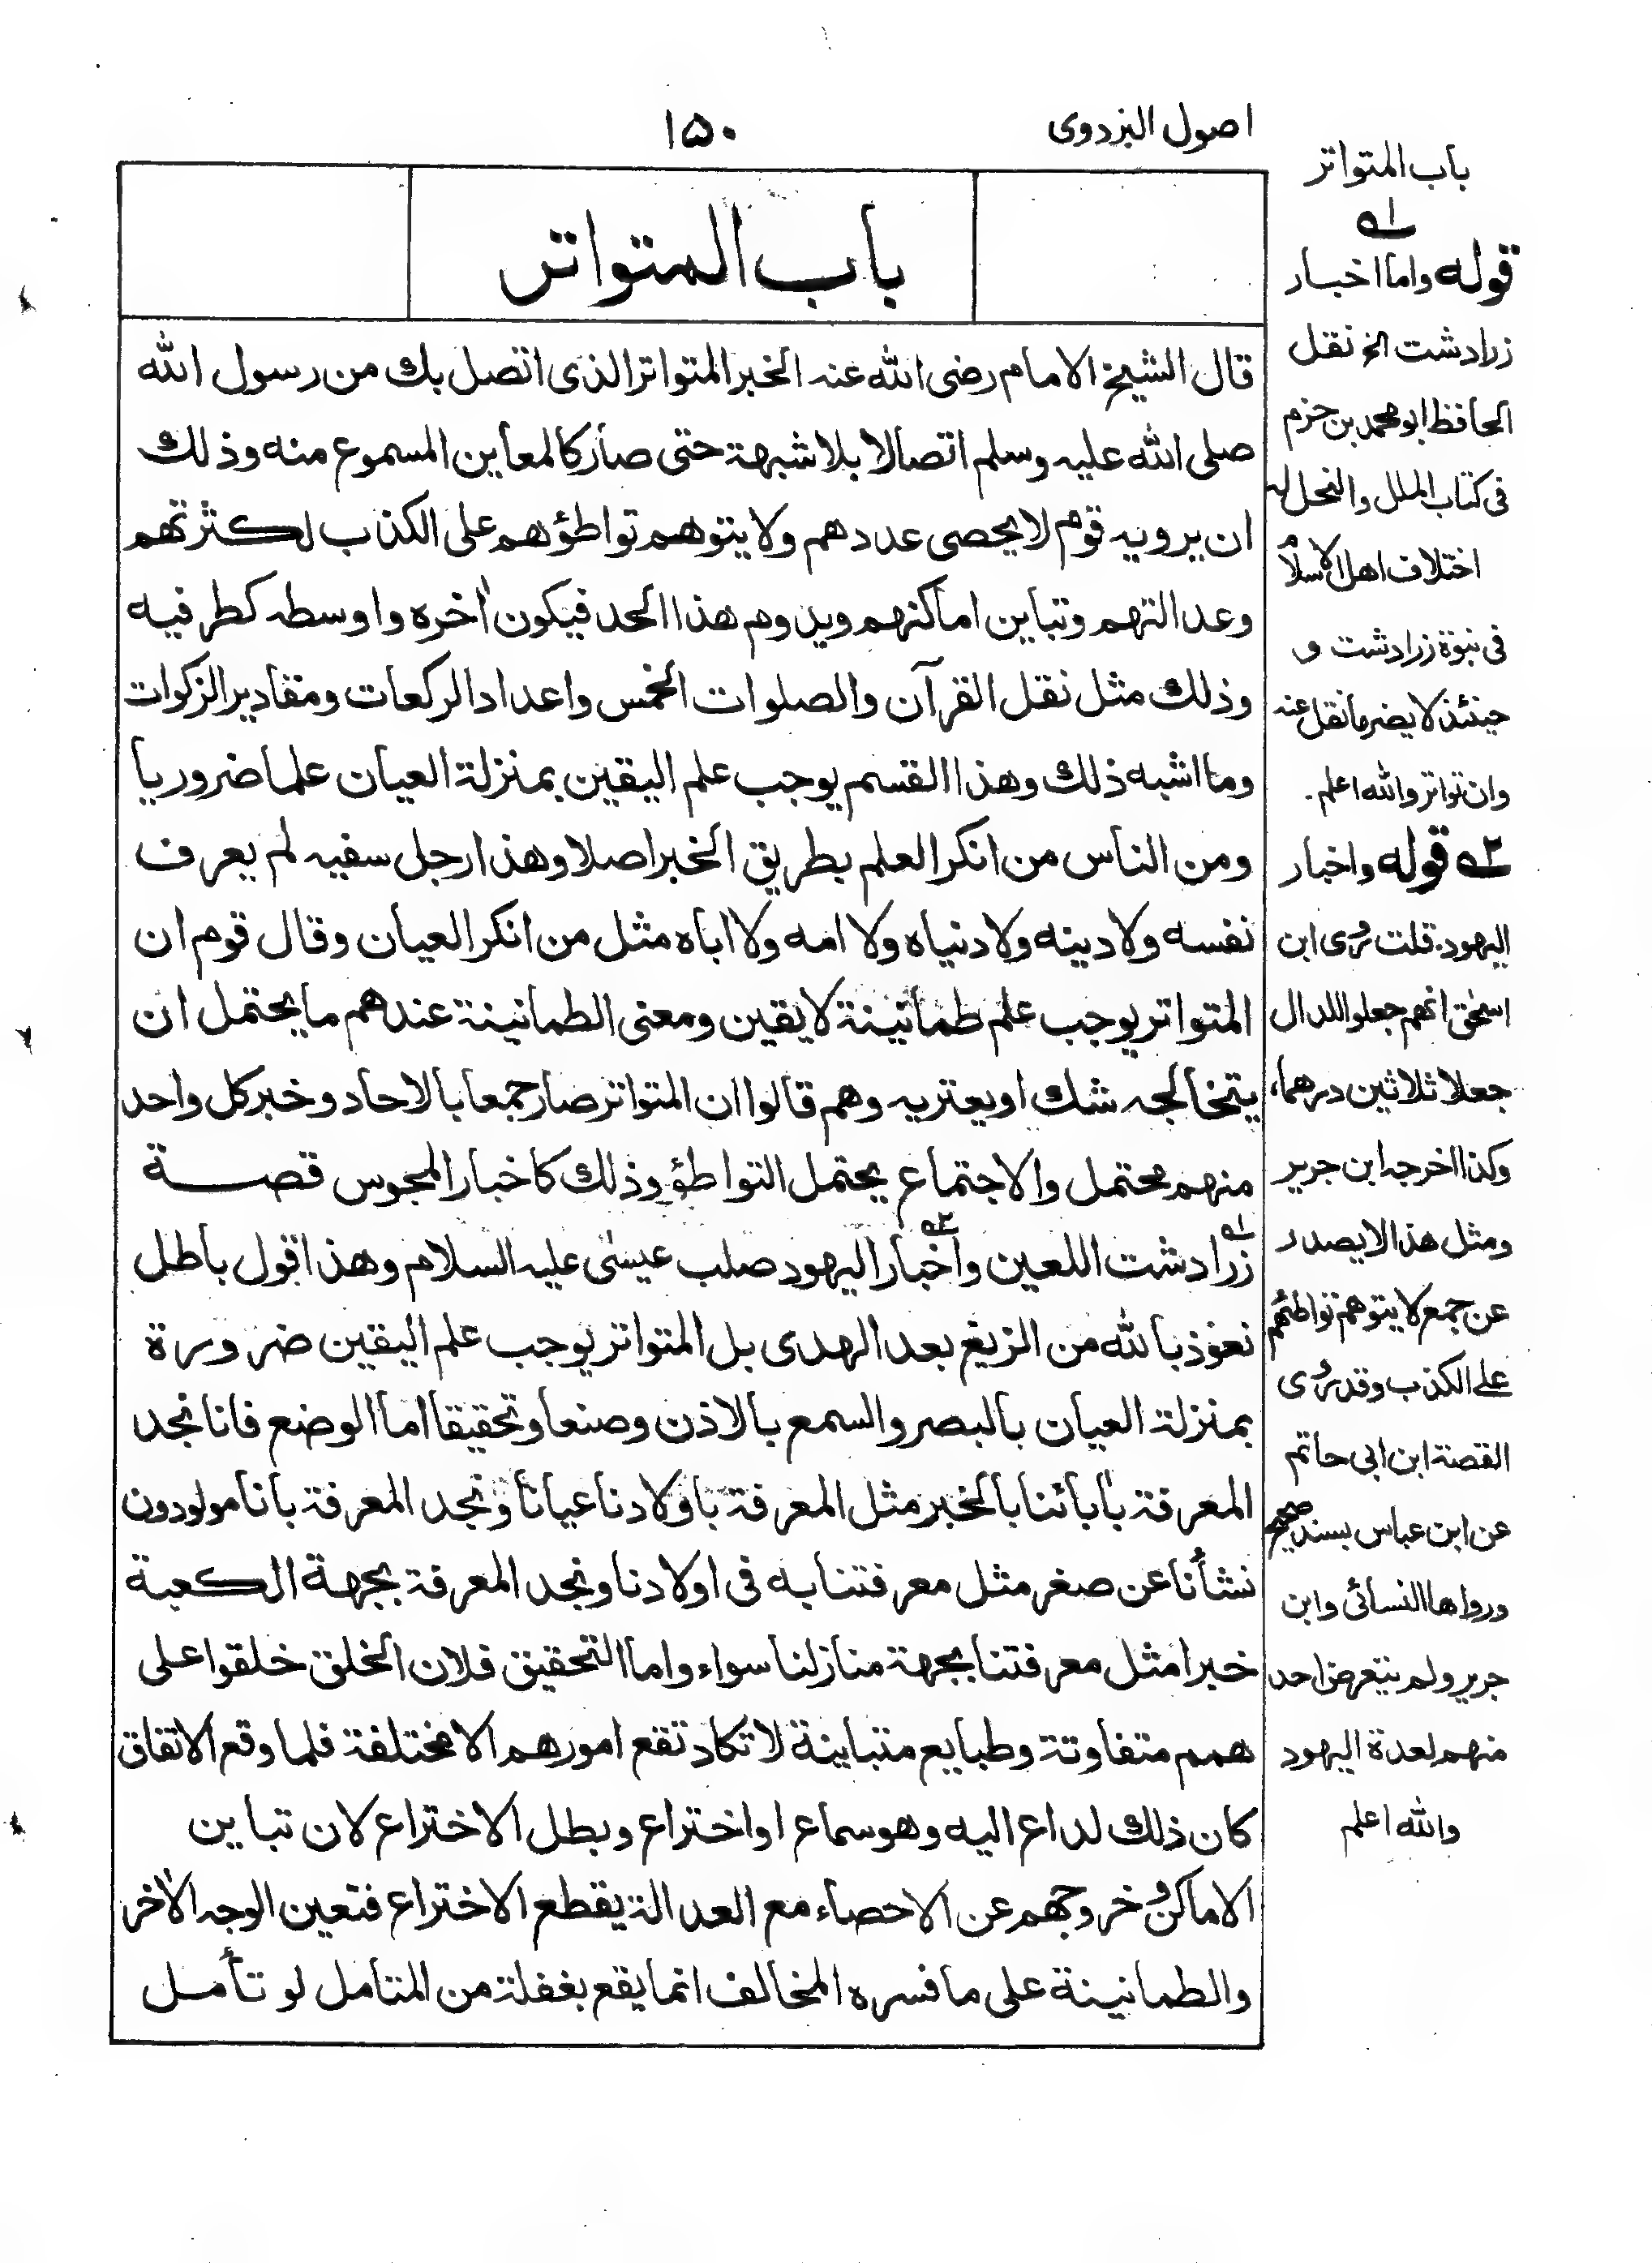 اصول البزدوی
۱۵۰
باب المتواتر
قال الشيخ الامام رضى الله عنه الخبر المتواتر الذى اتصل بك من رسول الله
صلى الله عليه وسلم اتصالا بلا شبهة حتى صار كالمعاين المسموع منه وذلك
ان يرويه قوم لا يحصى عددهم ولا يتوهم تواطؤهم على الكذب لكثرتهم
وعدالتهم وتباين اماكنهم ويدوم هذا الحد فيكون اٰخره واوسطه كطرفيه
وذلك مثل نقل القرآن والصلوات الخمس واعداد الركعات ومقادير الزكوات
وما اشبه ذلك وهذا القسم يوجب علم اليقين بمنزلة العيان علما ضروريا
ومن الناس من انكر العلم بطريق الخبر اصلا وهذا رجل سفيه لم يعرف
نفسه ولا دينه ولا دنياه ولا امه ولا اباه مثل من انكر العيان وقال قوم ان
المتواتر يوجب علم طمأنينة لا يقين ومعنى الطمانينة عندهم ما يحتمل ان
يتخالجه شك او يعتريه وهم قالوا ان المتواتر صار جمعا بالاحاد وخبر كل واحد
منهم محتمل والاجتماع يحتمل التواطؤ وذلك كاخبار المجوس قصة
زرادشت۱ اللعين واخبار۲ اليهود صلب عيسٰى عليه السلام وهذا قول باطل
نعوذ بالله من الزيغ بعد الهدى بل المتواتر يوجب علم اليقين ضرورة
بمنزلة العيان بالبصر والسمع بالاذن وصنعا وتحقيقا اما الوضع فانا نجد
المعرفة باٰبائنا بالخبر مثل المعرفة باولادنا عيانا ونجد المعرفة بانا مولودون
نشأنا عن صغر مثل معرفتنا به فى اولادنا ونجد المعرفة بجهة الكعبة
خبرا مثل معرفتنا بجهة منازلنا سواء واما التحقيق فلان الخلق خلقوا على
همم متفاوتة وطبايع متباينة لا تكاد تقع امورهم الا مختلفة فلما وقع الاتفاق
كان ذلك لداع اليه وهو سماع او اختراع وبطل الاختراع لان تباين
الاماكن وخروجهم عن الاحصاء مع العدالة يقطع الاختراع فتعين الوجه الاٰخر
والطمانينة على ما فسره المخالف انما يقع بغفلة من المتامل لو تأمل
باب المتواتر
۱
قوله واما اخبار
زرادشت الخ نقل
الحافظ ابو محمد بن حزم
فى كتاب الملل والنحل له
اختلاف اهل الاسلام
فى نبوة زرادشت و
حينئذ لا يضر ما نقل عنه
وان تواتر والله اعلم.
۲ قوله واخبار
اليهود. قلت رُوى ابن
اسحٰق انهم جعلوا للدال
جعلا ثلاثين درهما،
وكذا اخرجه ابن جرير
ومثل هذا لا يصدر
عن جمع لا يتوهم تواطئهم
على الكذب وقد رُوى
القصة ابن ابى حاتم
عن ابن عباس بسند صحيح
ورواها النسائى وابن
جرير ولم يتعرض احد
منهم لعدة اليهود
والله اعلم